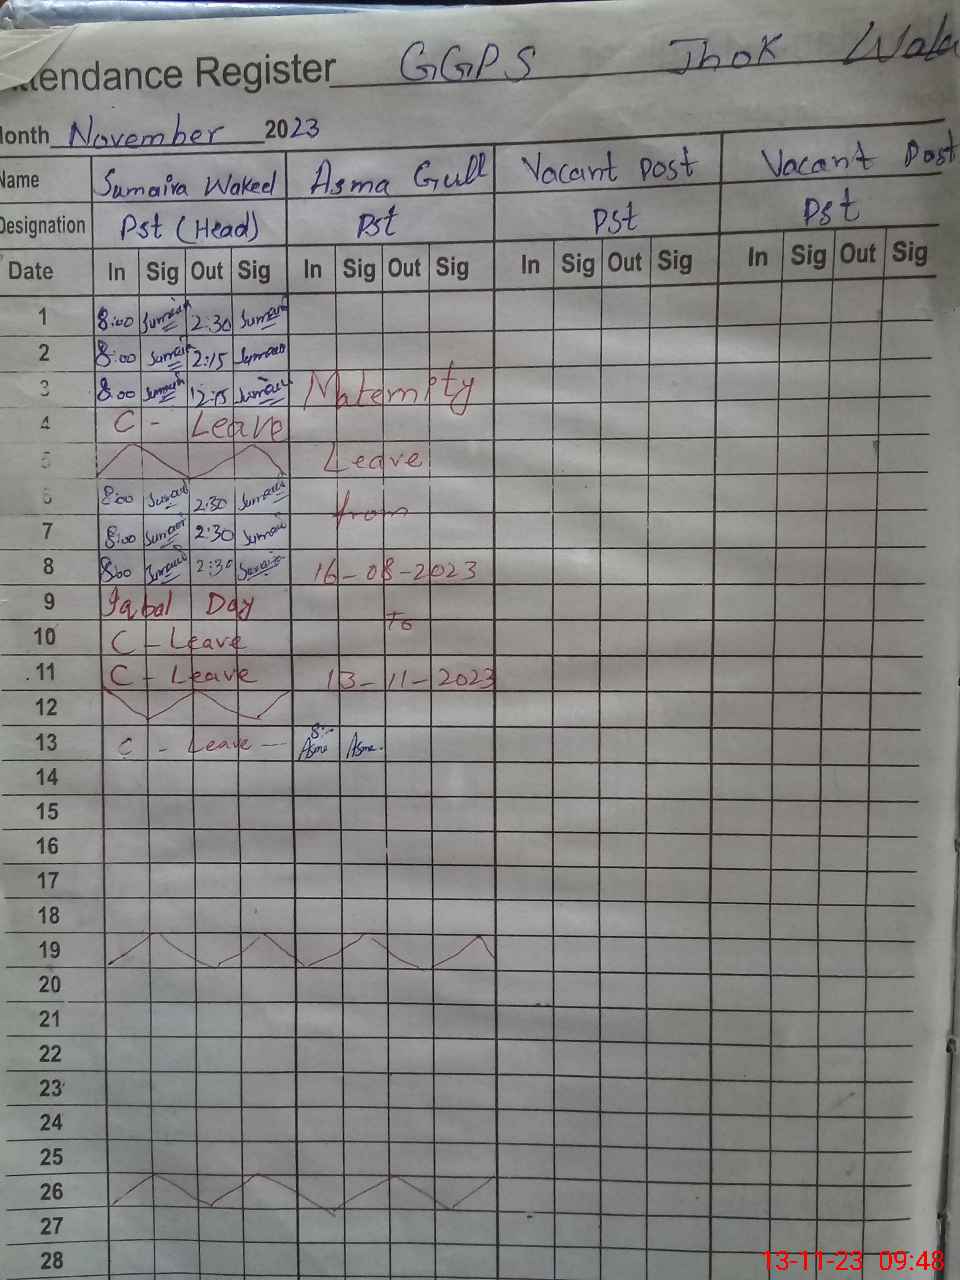 tendance Register GGPS Jhok Wala
Month November 2023
Name Sumaira Wakeel Asma Gull Vacant post Vacant Post
Designation Pst (Head) Pst Pst Pst
Date In Sig Out Sig In Sig Out Sig In Sig Out Sig In Sig Out Sig
1 8:00 Sumaira 2:30 Sumaira
2 8:00 Sumaira 2:15 Sumaira
3 8:00 Sumaira 12:15 Sumaira Maternity
4 C - Leave
5 Leave
6 8:00 Sumaira 2:30 Sumaira from
7 8:00 Sumaira 2:30 Sumaira
8 8:00 Sumaira 2:30 Sumaira 16-08-2023
9 Iqbal Day
To
10 C - Leave
11 C - Leave 13-11-2023
12
13 C - Leave 8:- Asma Asma
14
15
16
17
18
19
20
21
22
23
24
25
26
27
28
13-11-23 09:48